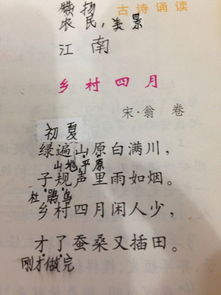 赞扬 古诗诵读
农民,美景
江南
乡村四月
宋·翁 卷
初夏
绿遍山原白满川,
山地平原
子规声里雨如烟。
杜鹃鸟
乡村四月闲人少,
才了蚕桑又插田。
刚才做完